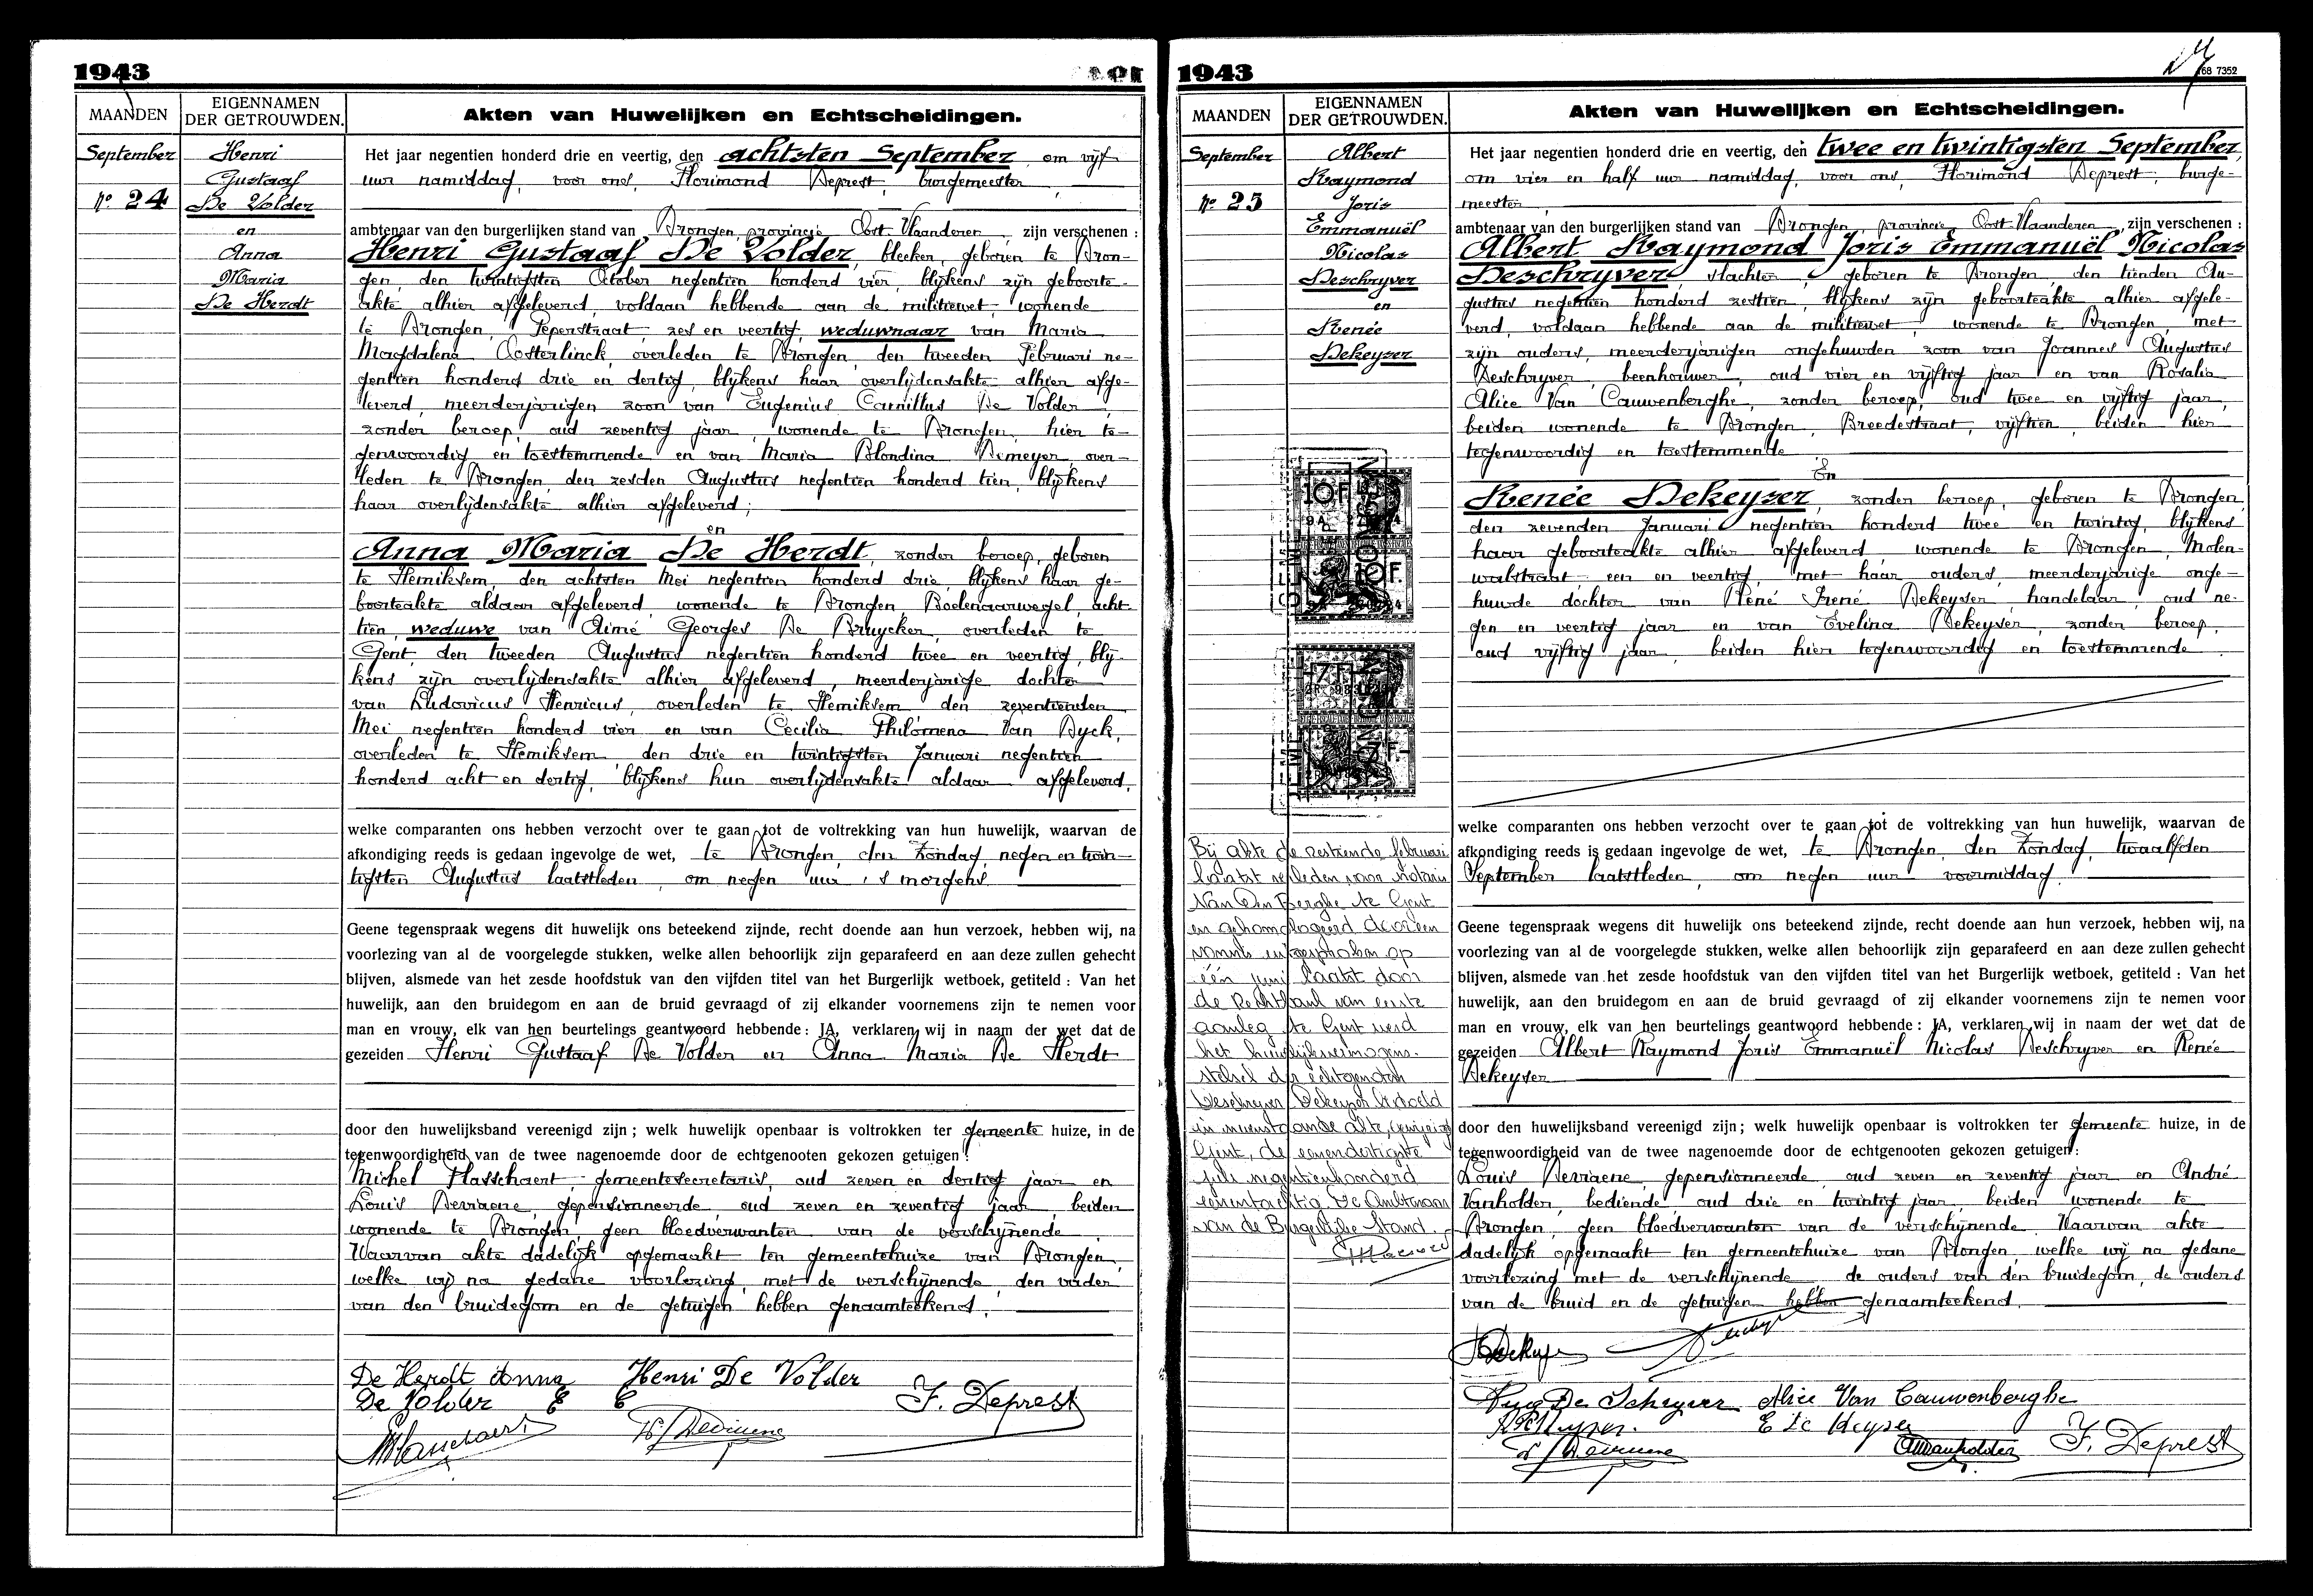 1943
MAANDEN
EIGENNAMEN
DER GETROUWDEN.
Akten van Huwelijken en Echtscheidingen.
September
No 24
Henri
Gustaaf
De Volder
en
Anna
Maria
De Herdt
Het jaar negentien honderd drie en veertig, den achtsten September, om vijf
uur namiddag, voor ons, Florimond Deprest, burgemeester,
ambtenaar van den burgerlijken stand van Drongen, provincie Oost-Vlaanderen, zijn verschenen :
Henri Gustaaf De Volder, bleeker, geboren te Dron-
gen, den twintigsten October negentien honderd vier, blijkens zijn geboorte-
akte alhier afgeleverd, voldaan hebbende aan de militiewet, wonende
te Drongen, Peperstraat, zes en veertig, weduwnaar van Maria
Magdalena Oosterlinck, overleden te Drongen, den tweeden Februari ne-
gentien honderd drie en dertig, blijkens haar overlijdensakte alhier afge-
leverd, meerderjarigen zoon van Eugenius Camillus De Volder,
zonder beroep, oud zeventig jaar, wonende te Drongen, hier te-
genwoordig en toestemmende en van Maria Blondina Demeyer, over-
leden te Drongen, den zesden Augustus negentien honderd tien, blijkens
haar overlijdensakte alhier afgeleverd;
en
Anna Maria De Herdt, zonder beroep, geboren
te Hemiksem, den achtsten Mei negentien honderd drie, blijkens haar ge-
boorteakte aldaar afgeleverd, wonende te Drongen, Boelenaarwegel, acht
tien, weduwe van Aimé Georges De Bruycker, overleden te
Gent, den tweeden Augustus negentien honderd twee en veertig, blij-
kens zijn overlijdensakte alhier afgeleverd, meerderjarige dochter
van Ludovicus Henricus, overleden te Hemiksem den zeventienden
Mei negentien honderd vier en van Cecilia Philomena Van Dyck,
overleden te Hemiksem den drie en twintigsten Januari negentien
honderd acht en dertig, blijkens hun overlijdensakte aldaar afgeleverd,
welke comparanten ons hebben verzocht over te gaan tot de voltrekking van hun huwelijk, waarvan de
afkondiging reeds is gedaan ingevolge de wet, te Drongen, den Zondag, negen en twin-
tigsten Augustus laatstleden, om negen uur 's morgens.
Geene tegenspraak wegens dit huwelijk ons beteekend zijnde, recht doende aan hun verzoek, hebben wij, na
voorlezing van al de voorgelegde stukken, welke allen behoorlijk zijn geparafeerd en aan deze zullen gehecht
blijven, alsmede van het zesde hoofdstuk van den vijfden titel van het Burgerlijk wetboek, getiteld : Van het
huwelijk, aan den bruidegom en aan de bruid gevraagd of zij elkander voornemens zijn te nemen voor
man en vrouw, elk van hen beurtelings geantwoord hebbende : JA, verklaren wij in naam der wet dat de
gezeiden Henri Gustaaf De Volder en Anna Maria De Herdt
door den huwelijksband vereenigd zijn ; welk huwelijk openbaar is voltrokken ter gemeente huize, in de
tegenwoordigheid van de twee nagenoemde door de echtgenooten gekozen getuigen :
Michel Hasschaert, gemeentesecretaris, oud zeven en dertig jaar en
Louis Devriaene, gepensionneerde, oud zeven en zeventig jaar, beiden
wonende te Drongen, geen bloedverwanten van de verschijnende.
Waarvan akte dadelijk opgemaakt ten gemeentehuize van Drongen,
welke wij na gedane voorlezing, met de verschijnende, den vader
van den bruidegom en de getuigen hebben genaamteekend.
De Herdt Anna Henri De Volder
De Volder E C F. Deprest
1943
68 7352
MAANDEN
EIGENNAMEN
DER GETROUWDEN.
Akten van Huwelijken en Echtscheidingen.
September
No 25
Albert
Raymond
Joris
Emmanuël
Nicolas
Deschryver
en
Renée
Dekeyser
Het jaar negentien honderd drie en veertig, den twee en twintigsten September,
om vier en half uur namiddag, voor ons, Florimond Deprest, burge-
meester,
ambtenaar van den burgerlijken stand van Drongen, provincie Oost-Vlaanderen, zijn verschenen :
Albert Raymond Joris Emmanuël Nicolas
Deschryver, slachter, geboren te Drongen, den tienden Au-
gustus negentien honderd zestien, blijkens zijn geboorteakte alhier afgele-
verd, voldaan hebbende aan de militiewet, wonende te Drongen, met
zijn ouders, meerderjarigen ongehuwden zoon van Joannes Augustus
Deschryver, beenhouwer, oud vier en vijftig jaar en van Rosalia
Alice Van Cauwenberghe, zonder beroep, oud twee en vijftig jaar,
beiden wonende te Drongen, Breedestraat, vijftien, beiden hier
tegenwoordig en toestemmende
En
Renée Dekeyser, zonder beroep, geboren te Drongen,
den zevenden Januari negentien honderd twee en twintig, blijkens
haar geboorteakte alhier afgeleverd, wonende te Drongen, Molen-
walstraat, een en veertig, met haar ouders, meerderjarige onge-
huwde dochter van René Irené Dekeyser, handelaar, oud ne-
gen en veertig jaar en van Evelina Dekeyser, zonder beroep,
oud vijftig jaar, beiden hier tegenwoordig en toestemmende.
10F
10F.
7F-
7F-
welke comparanten ons hebben verzocht over te gaan tot de voltrekking van hun huwelijk, waarvan de
afkondiging reeds is gedaan ingevolge de wet, te Drongen, den Zondag, twaalfden
September laatstleden, om negen uur voormiddag.
Geene tegenspraak wegens dit huwelijk ons beteekend zijnde, recht doende aan hun verzoek, hebben wij, na
voorlezing van al de voorgelegde stukken, welke allen behoorlijk zijn geparafeerd en aan deze zullen gehecht
blijven, alsmede van het zesde hoofdstuk van den vijfden titel van het Burgerlijk wetboek, getiteld : Van het
huwelijk, aan den bruidegom en aan de bruid gevraagd of zij elkander voornemens zijn te nemen voor
man en vrouw, elk van hen beurtelings geantwoord hebbende : JA, verklaren wij in naam der wet dat de
gezeiden Albert Raymond Joris Emmanuël Nicolas Deschryver en Renée
Dekeyser
door den huwelijksband vereenigd zijn ; welk huwelijk openbaar is voltrokken ter gemeente huize, in de
tegenwoordigheid van de twee nagenoemde door de echtgenooten gekozen getuigen :
Louis Devriaene, gepensionneerde, oud zeven en zeventig jaar en André
Vanholder, bediende, oud drie en twintig jaar, beiden wonende te
Drongen, geen bloedverwanten van de verschijnende. Waarvan akte
dadelijk opgemaakt ten gemeentehuize van Drongen, welke wij na gedane
voorlezing met de verschijnende de ouders van den bruidegom, de ouders
van de bruid en de getuigen hebben genaamteekend.
Bij akte de zestiende februari
laatst verleden voor notaris
Van Den Berghe te Gent
en gehomologeerd door een
vonnis uitgesproken op
één juni laatst door
de Rechtbank van eerste
aanleg te Gent werd
het huwelijksvermogens-
stelsel der echtgenoten
Deschryver Dekeyser bedoeld
in nevenstaande akte, gewijzigd
Gent, de eenendertigste
juli negentienhonderd
eenentachtig De Ambtenaar
van de Burgerlijke Stand.
Aug De Schryver Alice Van Cauwenberghe
E De Keyser
AVanholder F. Deprest